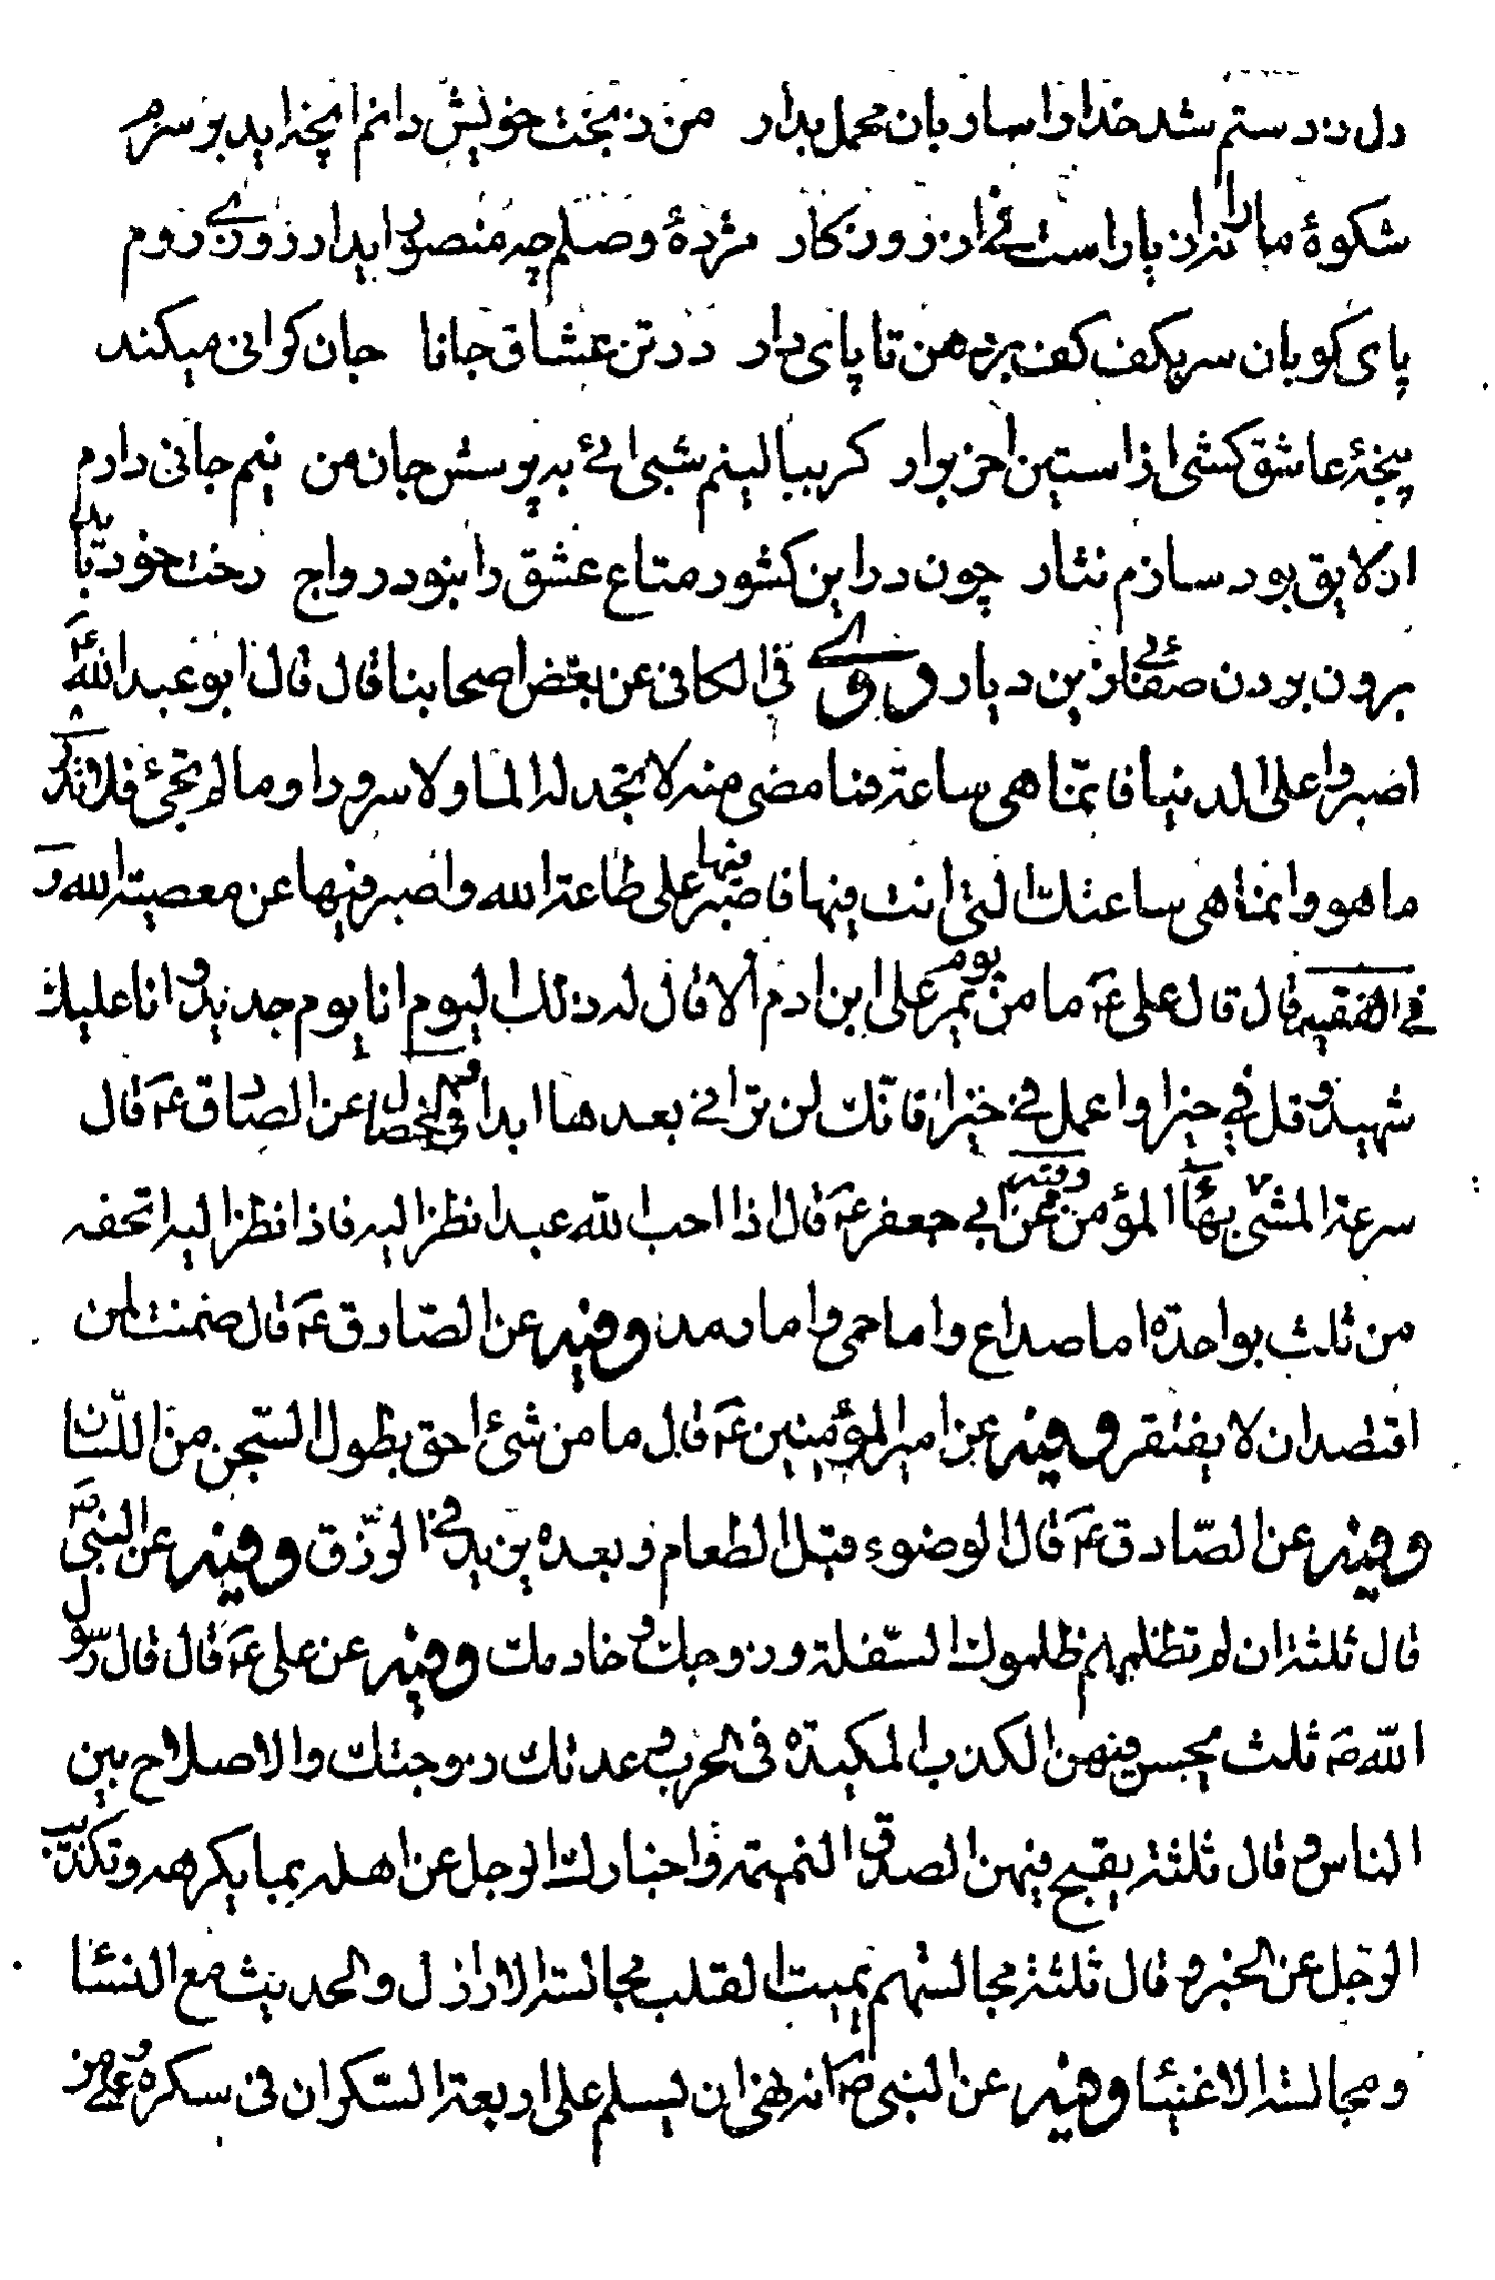 دل ز دستم شد خدا را ساربان محمل بدار من ز بخت خویش دانم انچه اید بر سرم
شکوهٔ ما را نز یار است نی از روزکار مژدهٔ وصلم چه منصور اید ار زوری روم
پای کوبان سر بکف کف بر دهن تا پای دار در تن عشاق جانا جان کرانی میکند
پنجهٔ عاشق کشی از استین اخر برار کر ببالینم شبی ائی به پرسش جان من نیم جانی دارم
ار لایق بود سازم نثار چون در این کشور متاع عشق را نبود رواج رخت خود باید
برون بردن صفائی زین دیار وی فی الکافی عن بعض اصحابنا قال قال ابو عبد الله ع
اصبروا علی الدنیا فانما هی ساعة فما مضی منه لا تجد له الما ولا سرورا وما لم تجئ فلا تدری
ما هو وانما هی ساعتک التی انت فیها فاصبر فیها علی طاعة الله واصبر فیها عن معصیة الله و
فی الفقیه قال قال علی ع ما من یوم یمر علی ابن ادم الا قال له ذلک الیوم انا یوم جدید وانا علیک
شهید وقل فی خیرا واعمل فی خیرا فانک لن ترانی بعدها ابدا وفی الخصال عن الصادق ع قال
سرعة المشی بهاء المؤمن وفیه عن ابی جعفر ع قال اذا احب الله عبدا نظر الیه فاذا نظر الیه اتحفه
من ثلث بواحدة اما صداع واما حمی واما رمد وفیه عن الصادق ع قال ضمنت لمن
اقتصد ان لا یفتقر وفیه عن امیر المؤمنین ع قال ما من شئ احق بطول السجن من اللسان
وفیه عن الصادق ع قال الوضوء قبل الطعام وبعده یزید فی الرزق وفیه عن النبی ص
قال ثلثة ان لم تظلمهم ظلموک السفلة وزوجک وخادمک وفیه عن علی ع قال قال رسول
الله ص ثلث یحسن فیهن الکذب المکیدة فی الحرب وعدتک زوجتک والاصلاح بین
الناس وقال ثلثة یقبح فیهن الصدق النمیمة واخبارک الرجل عن اهله بما یکرهه وتکذیب
الرجل عن الخبر وقال ثلثة مجالستهم یمیت القلب مجالسة الاراذل والحدیث مع النساء
ومجالسة الاغنیاء وفیه عن النبی ص انه نهی ان یسلم علی اربعة السکران فی سکره وعلی من